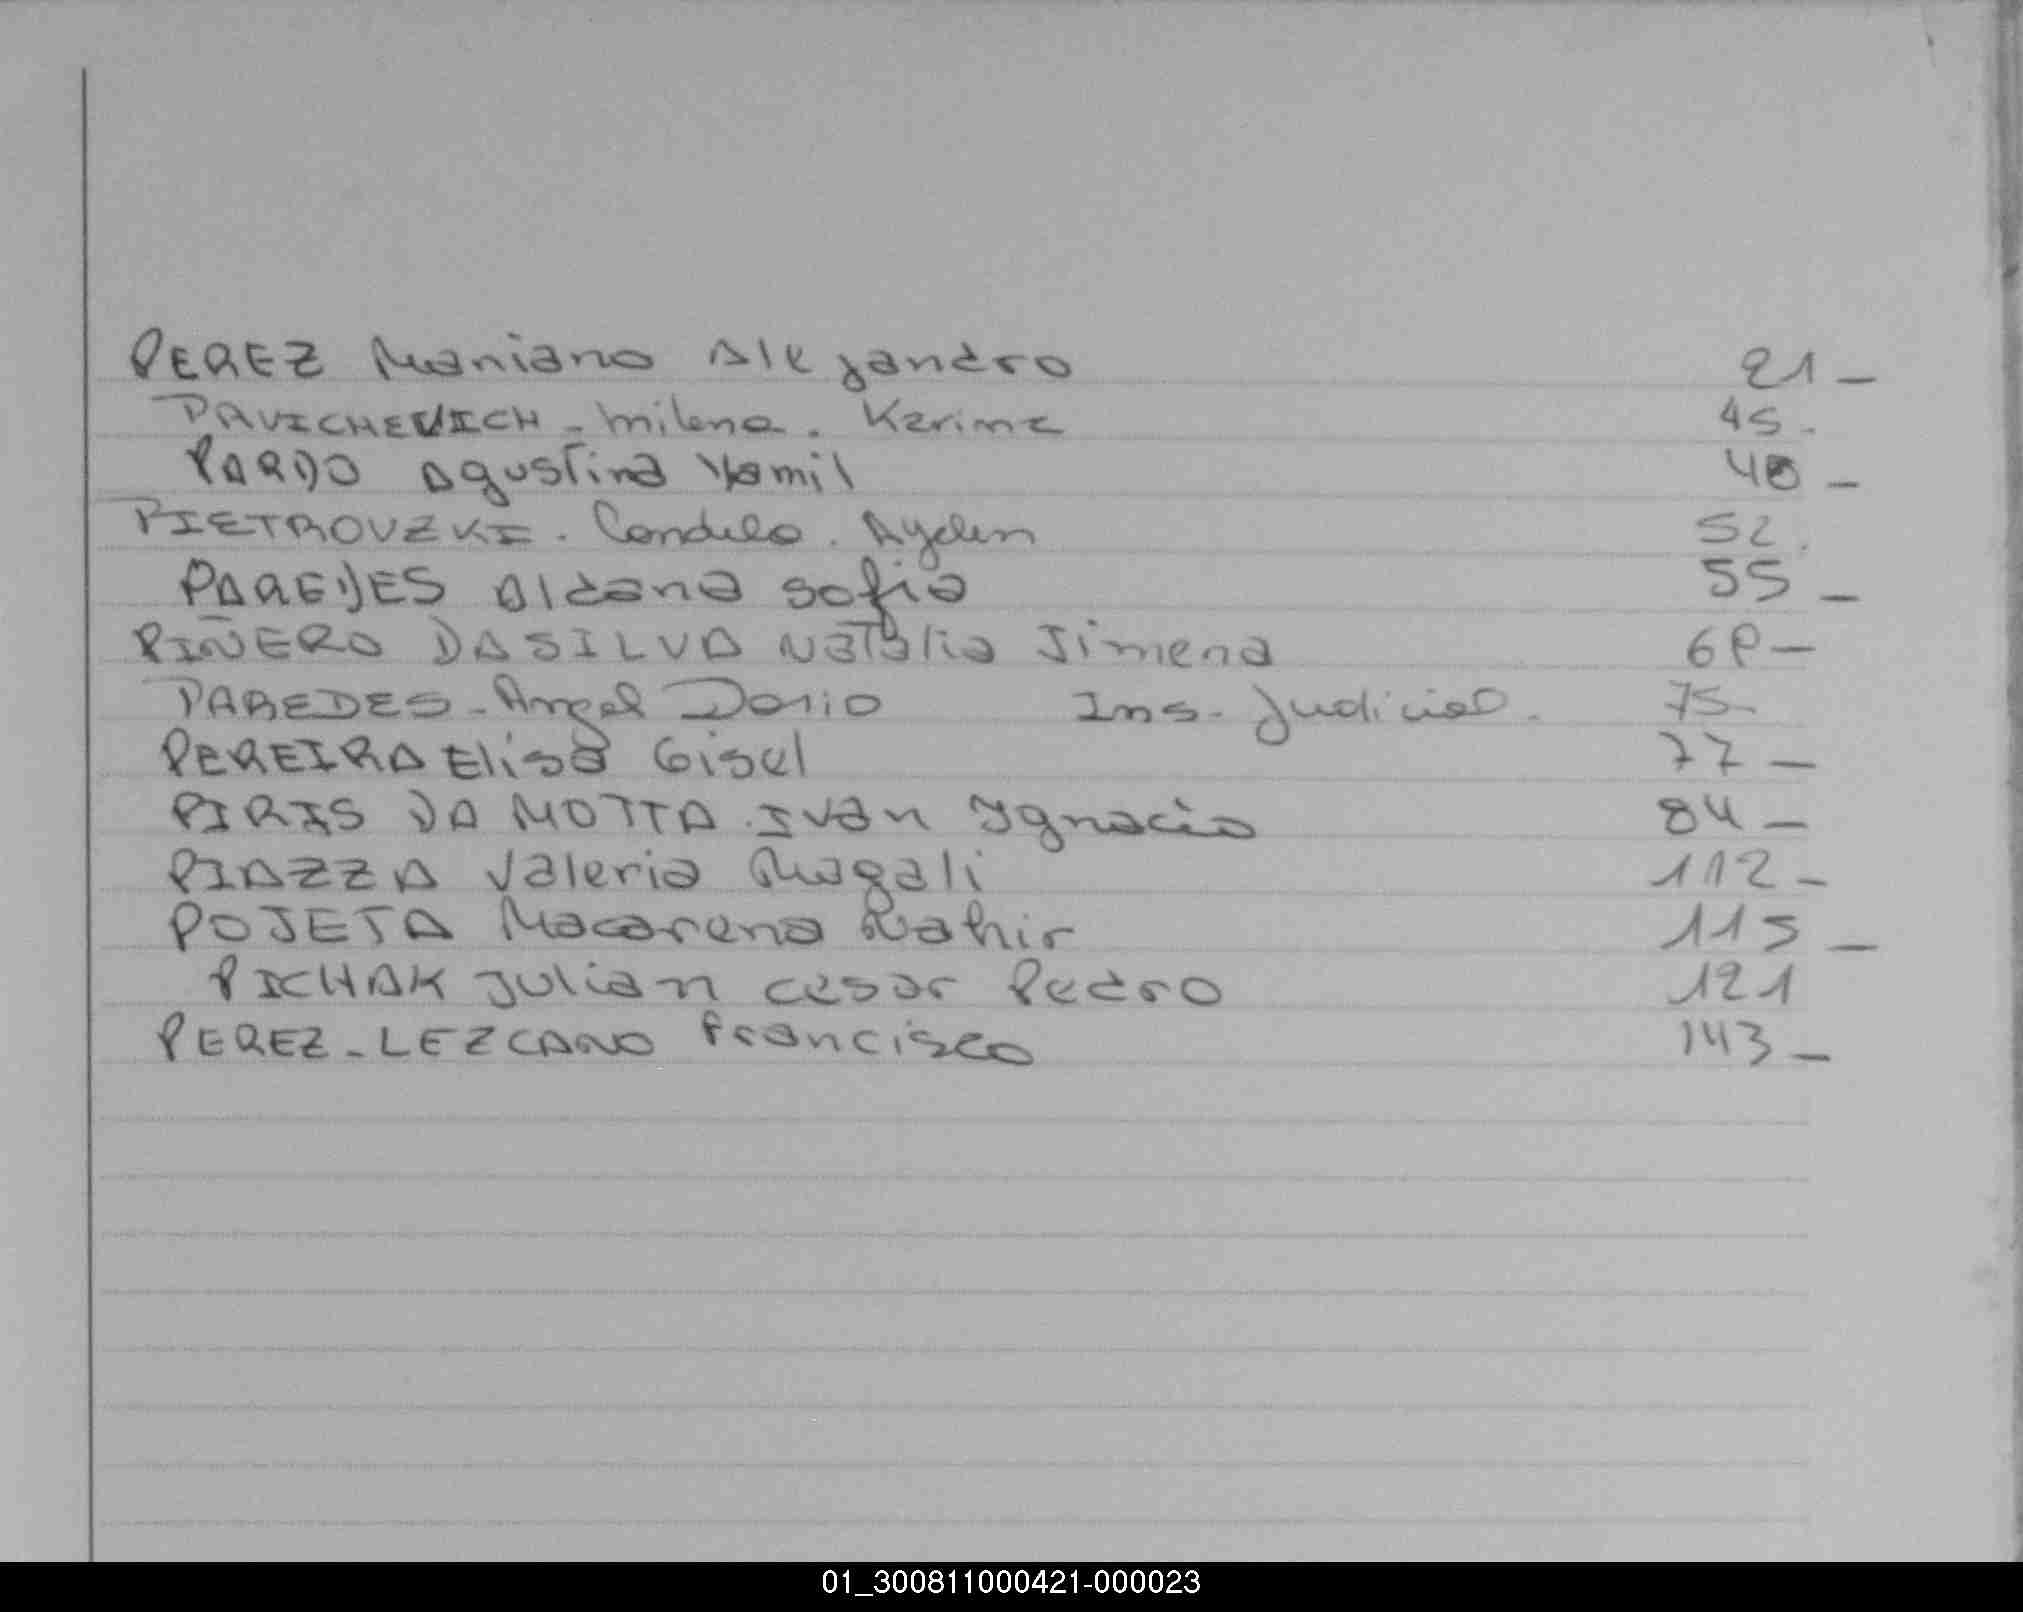 PEREZ Mariano Alejandro 21 _
PAVICHEVICH - Milena. Karime 45.
PARDO Agustina Yamil 48 _
PIETROVZKI. Candela. Aylen 52.
PAREDES Aldana Sofia 55 _
PIÑERO DASILVA Natalia Jimena 68 _
PAREDES - Angel Dario Ins. Judicial. 75-
PEREIRA Elisa Gisel 77 _
PIRIS DA MOTTA. Ivan Ygnacio 84 _
PIAZZA Valeria Magali 112 _
POJETA Macarena Nahir 115 _
PICHAK Julian Cesar Pedro 121
PEREZ - LEZCANO Francisco 143 _
01_300811000421-000023